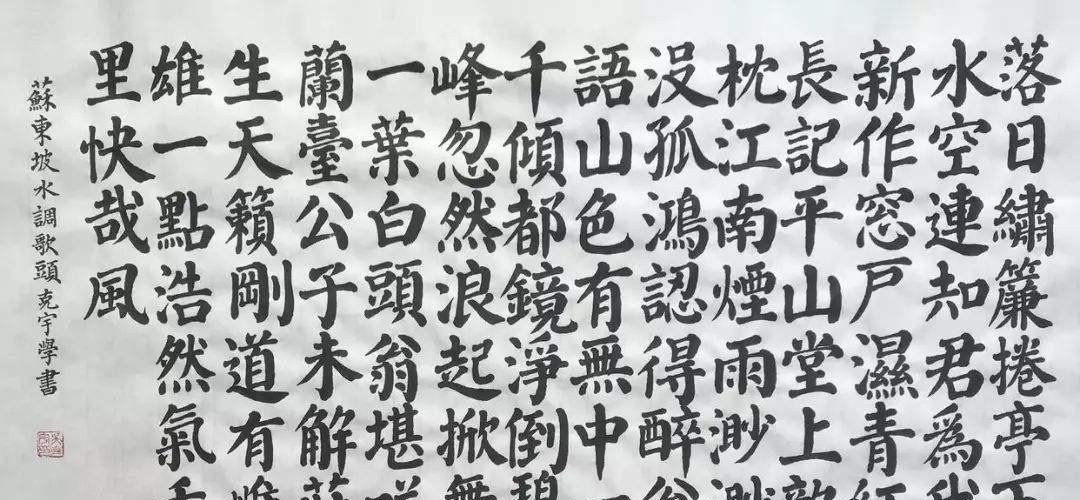 落日繡簾捲亭下
水空連知君爲我
新作窓戶濕青紅
長記平山堂上欹
枕江南煙雨渺渺
没孤鴻認得醉翁
語山色有無中
千傾都鏡淨倒碧
峰忽然浪起掀舞
一葉白頭翁堪
蘭臺公子未解莊
生天籟剛道有雌
雄一點浩然氣千
里快哉風
蘇東坡水調歌頭克宇學書